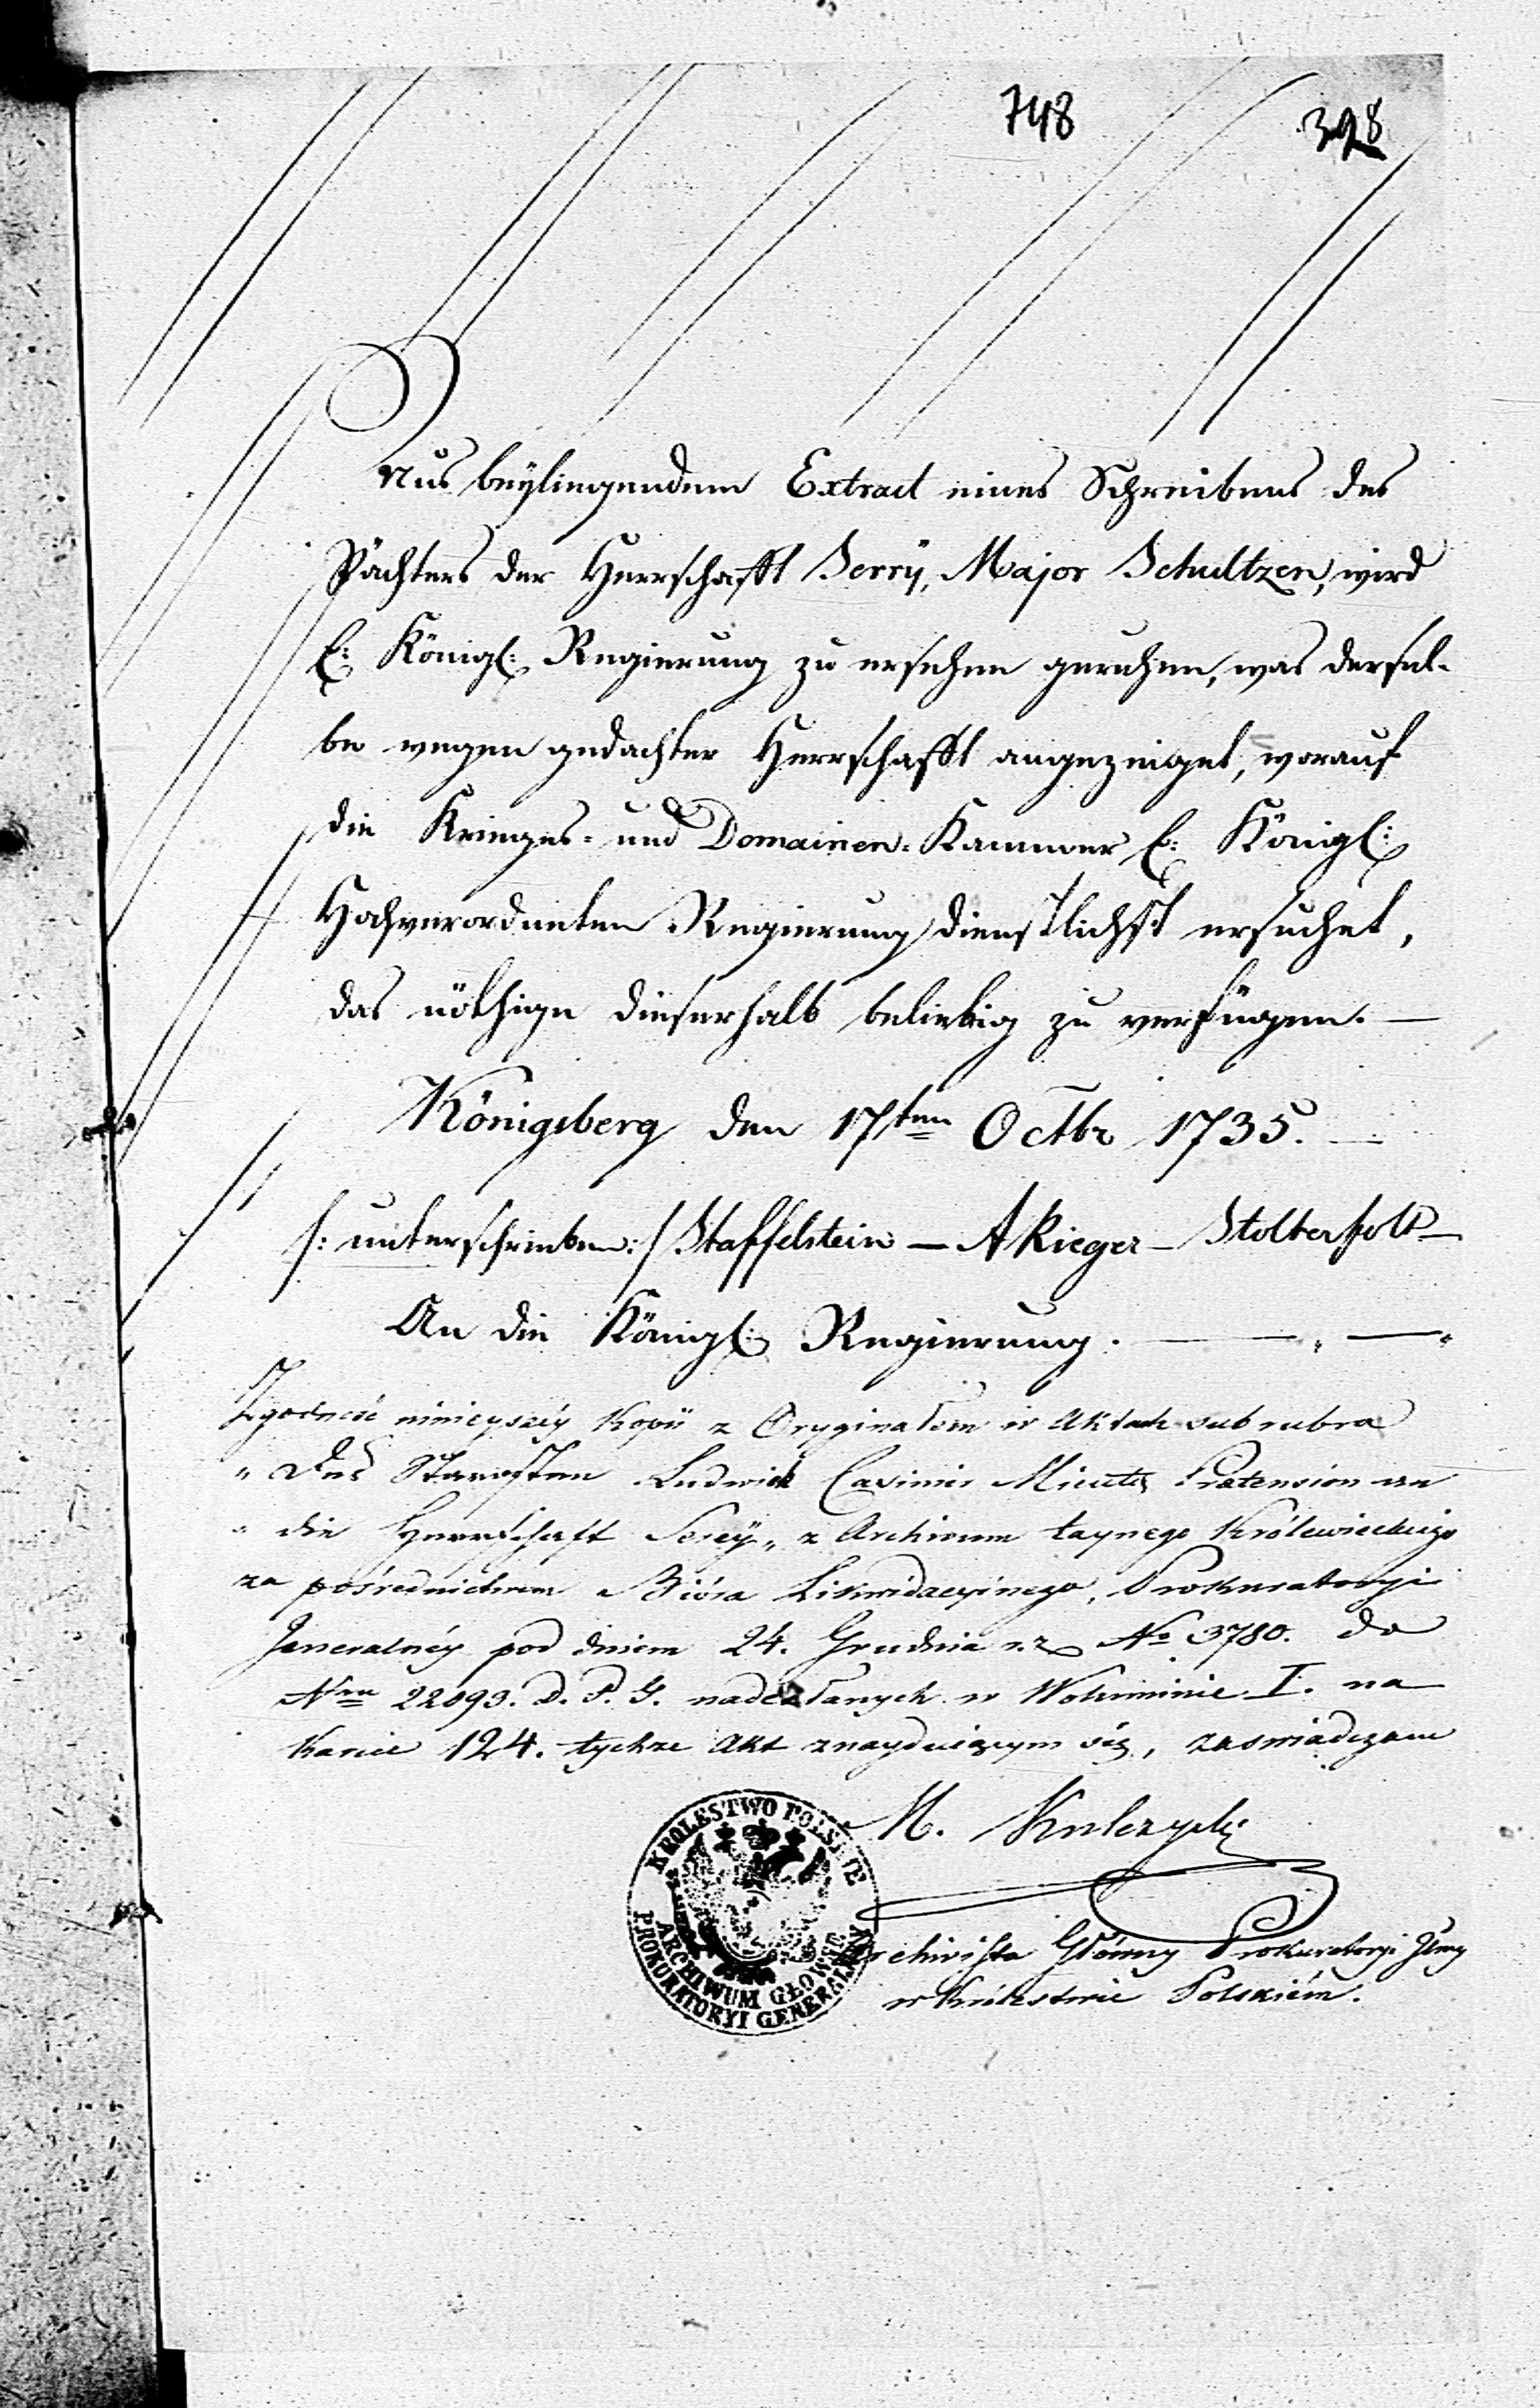 748 398
Aus beÿliegendem Extract eines Schreibens des
Pächters der Herrschafft Serrÿ, Major Schultzen, wird
E: Königl: Regierung zu ersehen geruhen, was dersel-
be wegen gedachter Herrschafft angezeiget, worauf
die Krieges- und Domainen-Kammer E: Königl:
Hochverordneten Regierung dienstlichst ersuchet,
das nöthige dieserhalb beliebig zu verfügen. —
Königsberg den 17ten Octbr 1735. —
/: unterschrieben :/ Staffelstein — A Rieger — Stolterfolt —
An die Königl: Regierung. — — „ — „
Zgodność ninieyszéy Kopii z Oryginałem w Aktach sub rubra
„ Des Starosten Ludwich Casimir Præetension an
„ die Herrschaft Serey „ z Archiwum taynego Królewieckiego
za pośrednictwem Bióra Likwidacyinego, Prokuratoryi
Jeneralnéy pod dniem 24. Grudnia r. z No 3780. do
Nru 22093. D. P. G. nadesłanych w Woluminie I. na
karcie 124. tychże Akt znayduiącym się, zaswiadczam
M. Kulczycki
KROLESTWO POLSKIE
ARCHIWUM GŁOWNE
PROKURATORYI GENERALNEY
Archivista Główny Prokuratoryi Jlney
w Królestwie Polskiém.